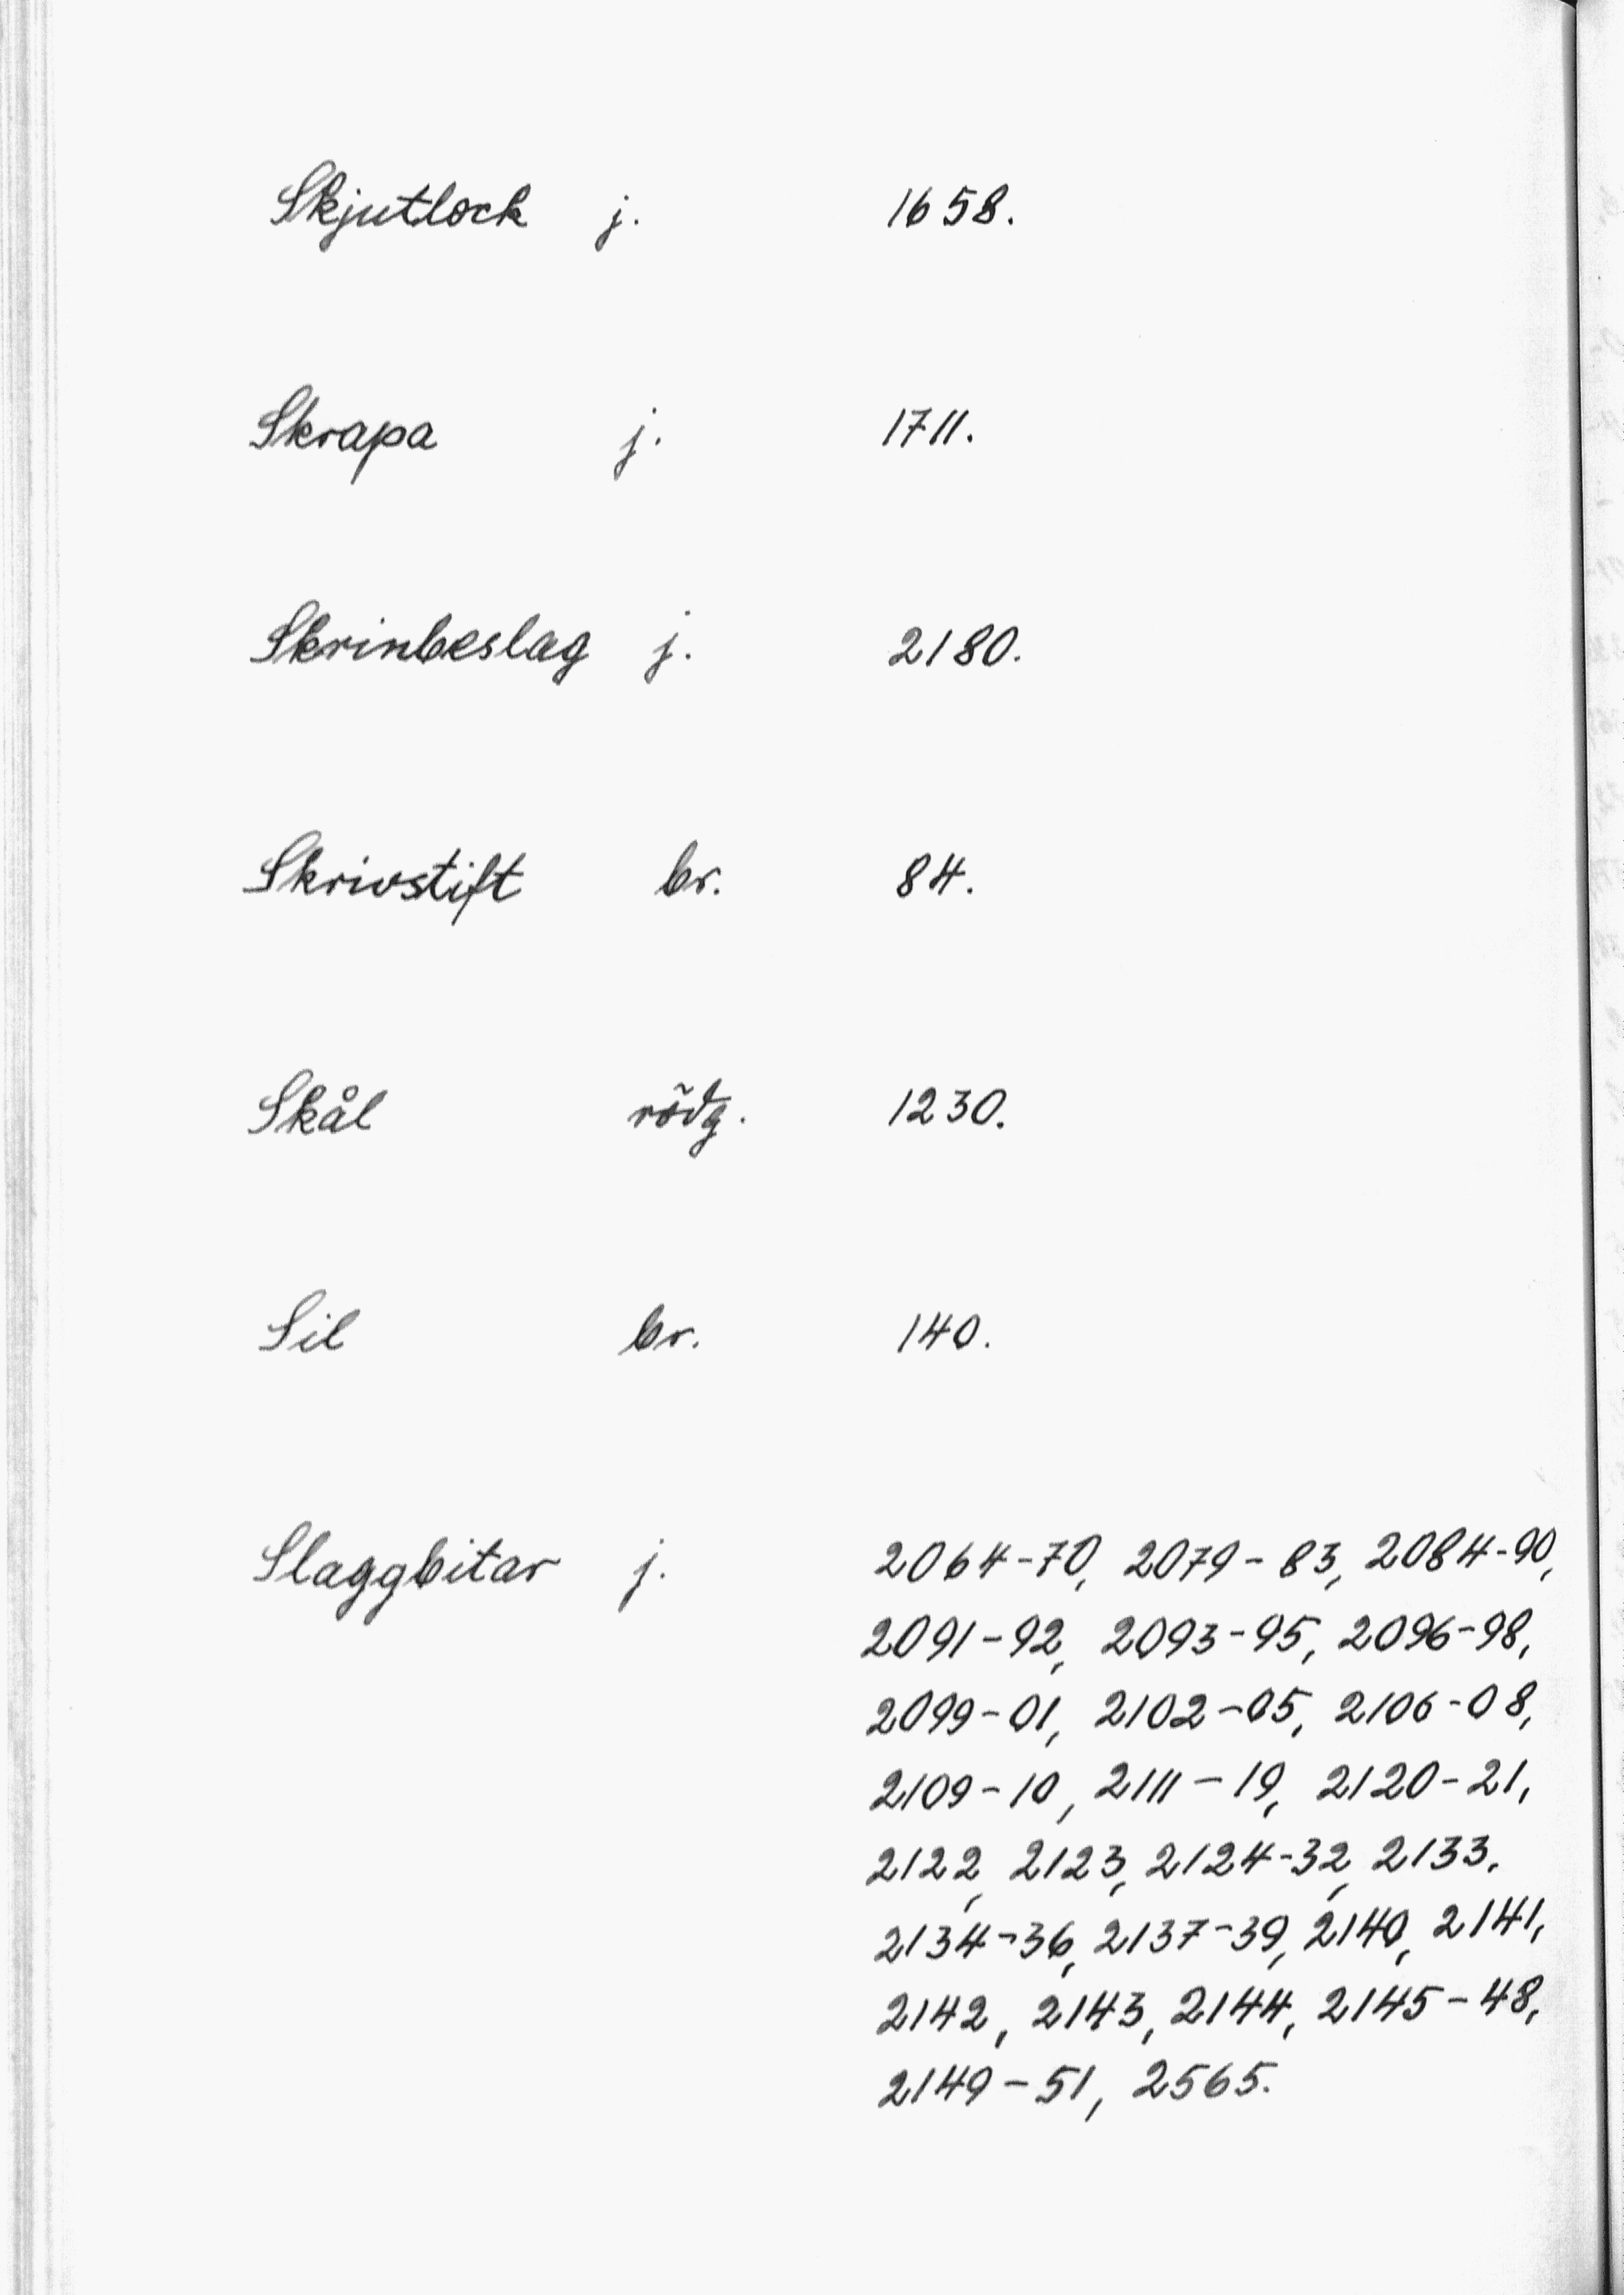 Skjutlock j. 1658.
Skrapa j. 1711.
Skrinbeslag j. 2180.
Skrivstift br. 84.
Skål rödg. 1230.
Sil br. 140.
Slaggbitar j. 2064-70, 2079-83, 2084-90,
2091-92, 2093-95, 2096-98,
2099-01, 2102-05, 2106-08,
2109-10, 2111-19, 2120-21,
2122, 2123, 2124-32, 2133.
2134-36, 2137-39, 2140, 2141,
2142, 2143, 2144, 2145-48,
2149-51, 2565.